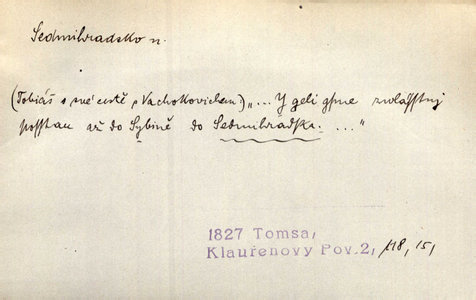 Sedmihradsko n.
(Tobiáš o své cestě s Vachotkovičem:) „... Y geli gsme zwlásstnj
posstau až do Sybině do Sedmihradska. ..."
1827 Tomsa,
Klauřenovy Pov. 2, 118, 15,